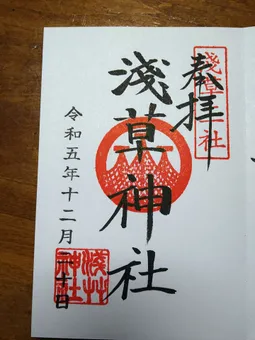 奉拝
淺草三社
淺草神社
令和五年十二月二十日
淺草
神社